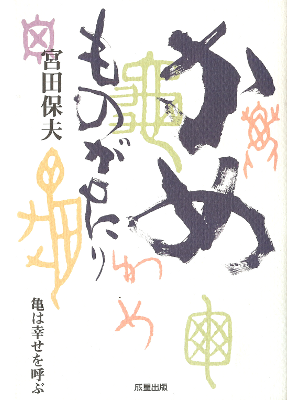 かめ
ものがたり
宮田保夫
かめ
亀は幸せを呼ぶ
成星出版